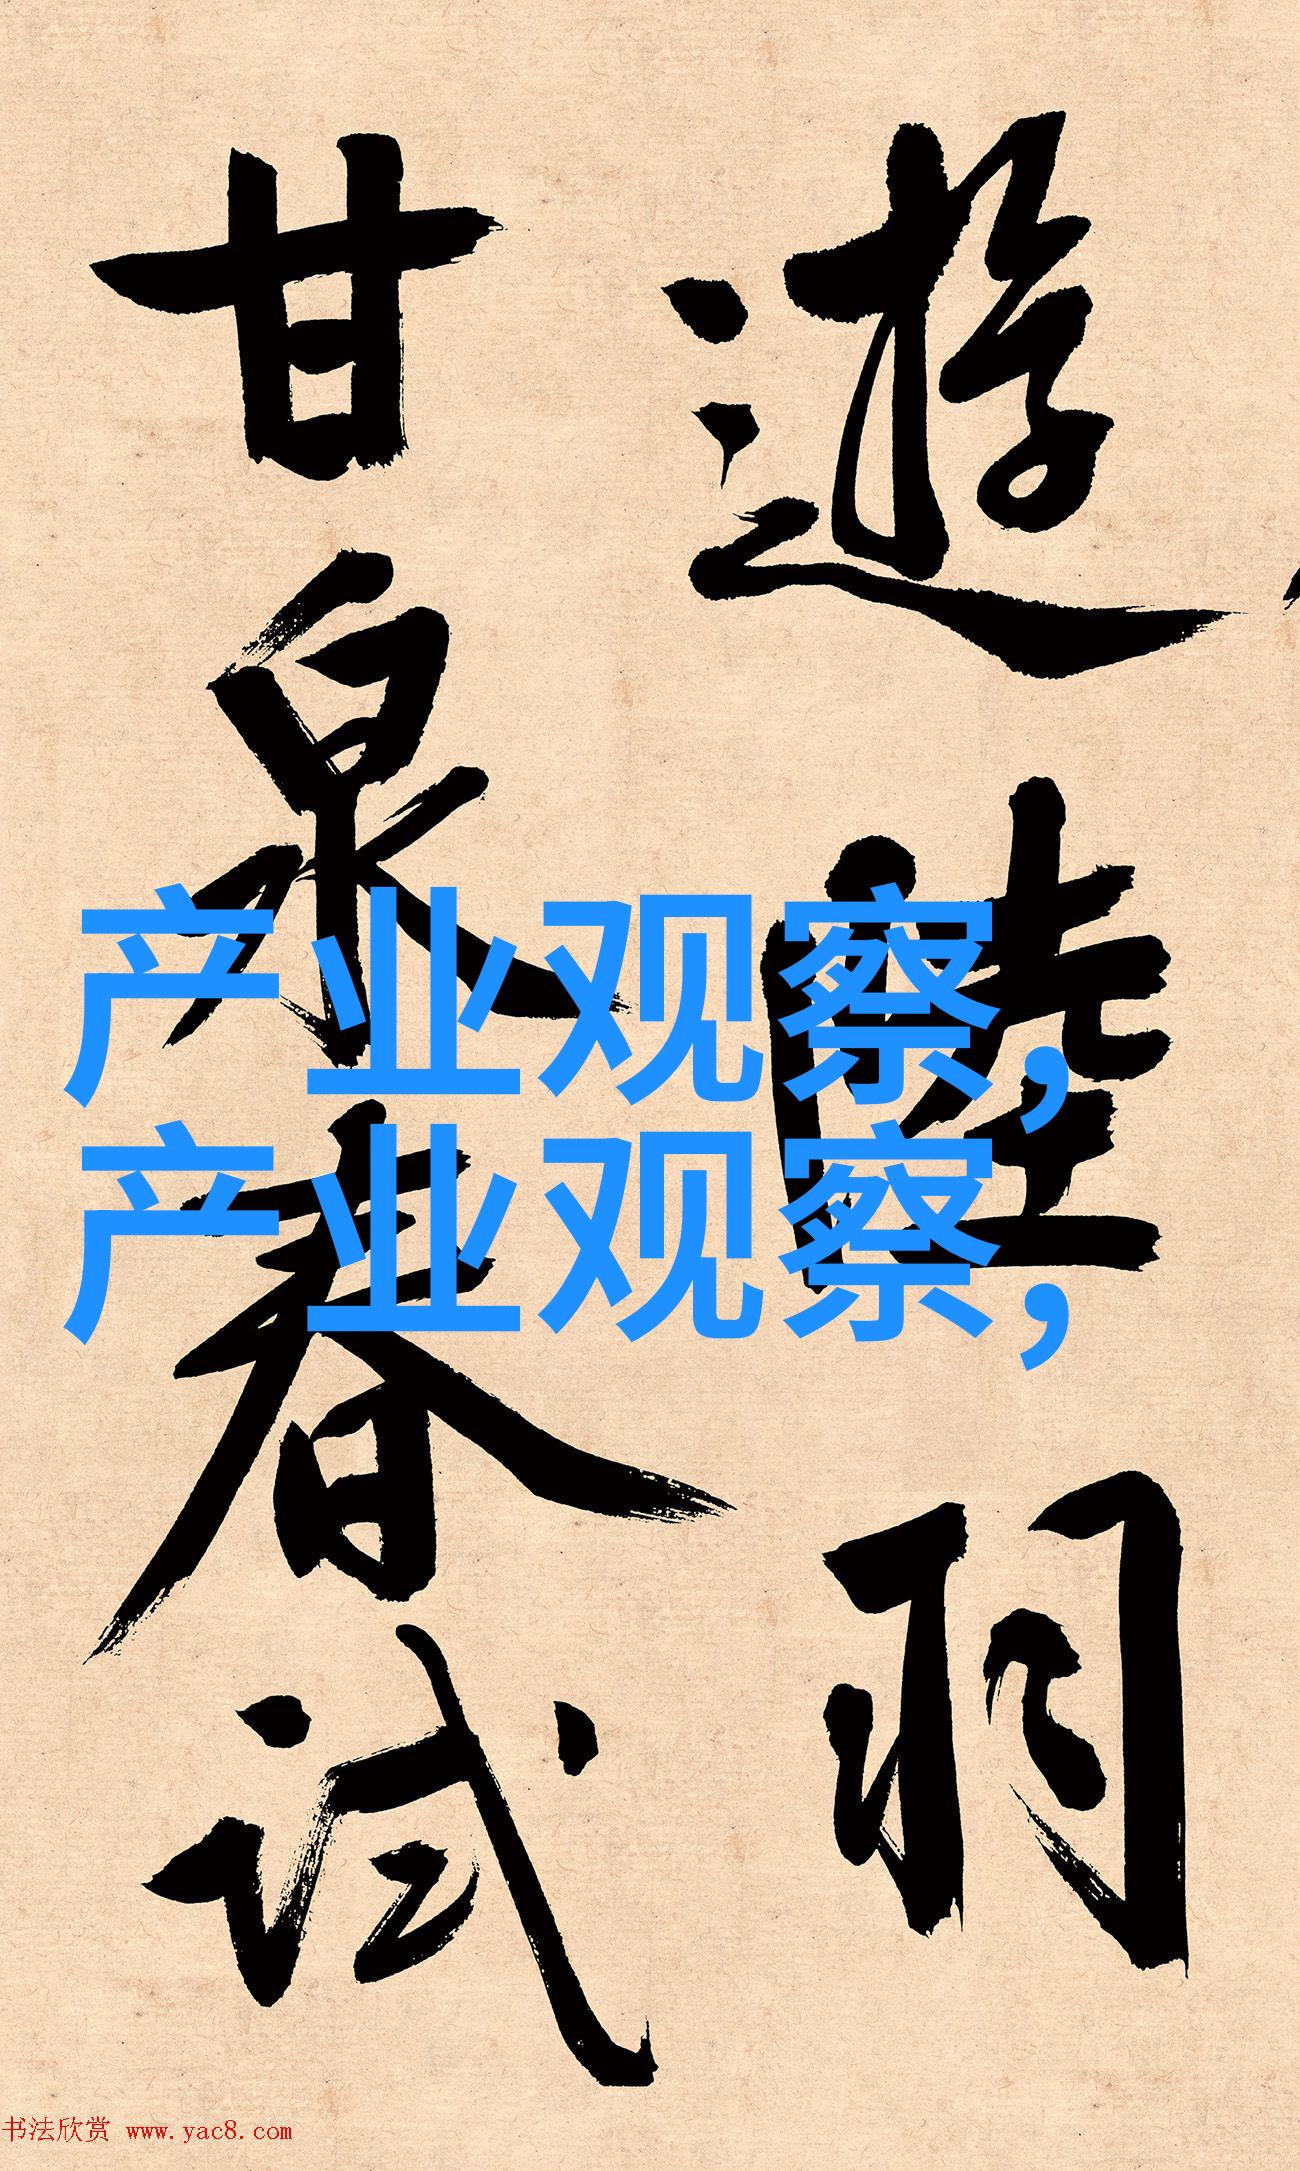 遊陸羽
甘泉春試
产业观察,
产业观察,
书法欣赏 www.yac8.com